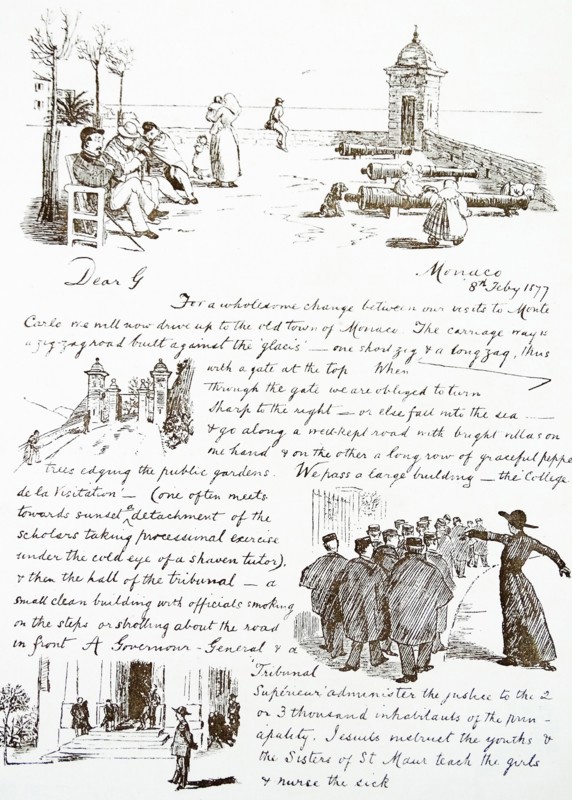 Dear G
Monaco
8th Feby 1877
For a wholesome change between our visits to Monte
Carlo we will now drive up to the old town of Monaco The carriage way is
a zig-zag road built against the 'glacis' — one short zig & a long zag, thus
with a gate at the top When
through the gate we are obliged to turn
sharp to the right — or else fall into the sea —
& go along a well-kept road with bright villas on
one hand & on the other a long row of graceful peppe
trees edging the public gardens. We pass a large building — the College
de la Visitation — (one often meets
towards sunset a detachment of the
scholars taking processional exercise
under the cold eye of a shaven tutor).
& then the hall of the tribunal — a
small clean building with officials smoking
on the steps or strolling about the road
in front A Governour-General & a
'Tribunal
Supérieur' administer the justice to the 2
or 3 thousand inhabitants of the prin-
apality. Jesuits instruct the youths &
the Sisters of St Maur teach the girls
& nurse the sick